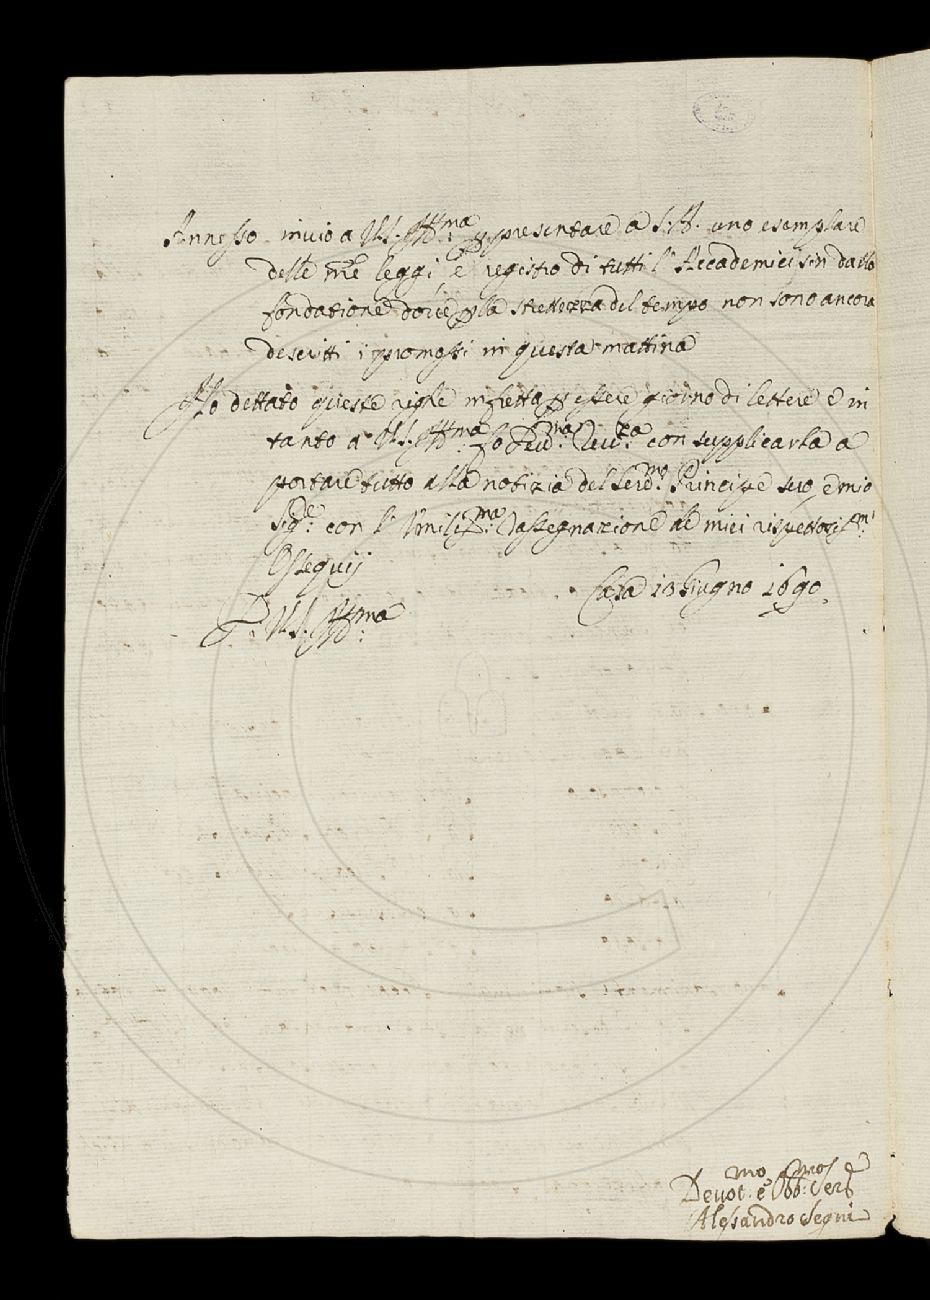 Annesso invio a V.S. Ill.ma p presentare à S.A. uno esemplare
delle me leggi, e registro di tutti l'Accademici sin dalla
fondazione dove p la strettezza del tempo non sono ancora
descritti i promossi in questa mattina
Ho dettato queste righe in fretta p essere giorno di lettere e in
tanto a V.S. Ill.ma fo Dev.ma Rev.za con supplicarla a
portare tutto alla notizia del Ser.mo Principe suo, e mio
Sig.re con l'Umiliss.ma rassegnazione de miei rispettosiss.mi
Ossequij
Casa 13 Giugno 1690
D. V.S. Ill.ma
Devot.mo e Obb.mo Ser.e
Alessandro Segni